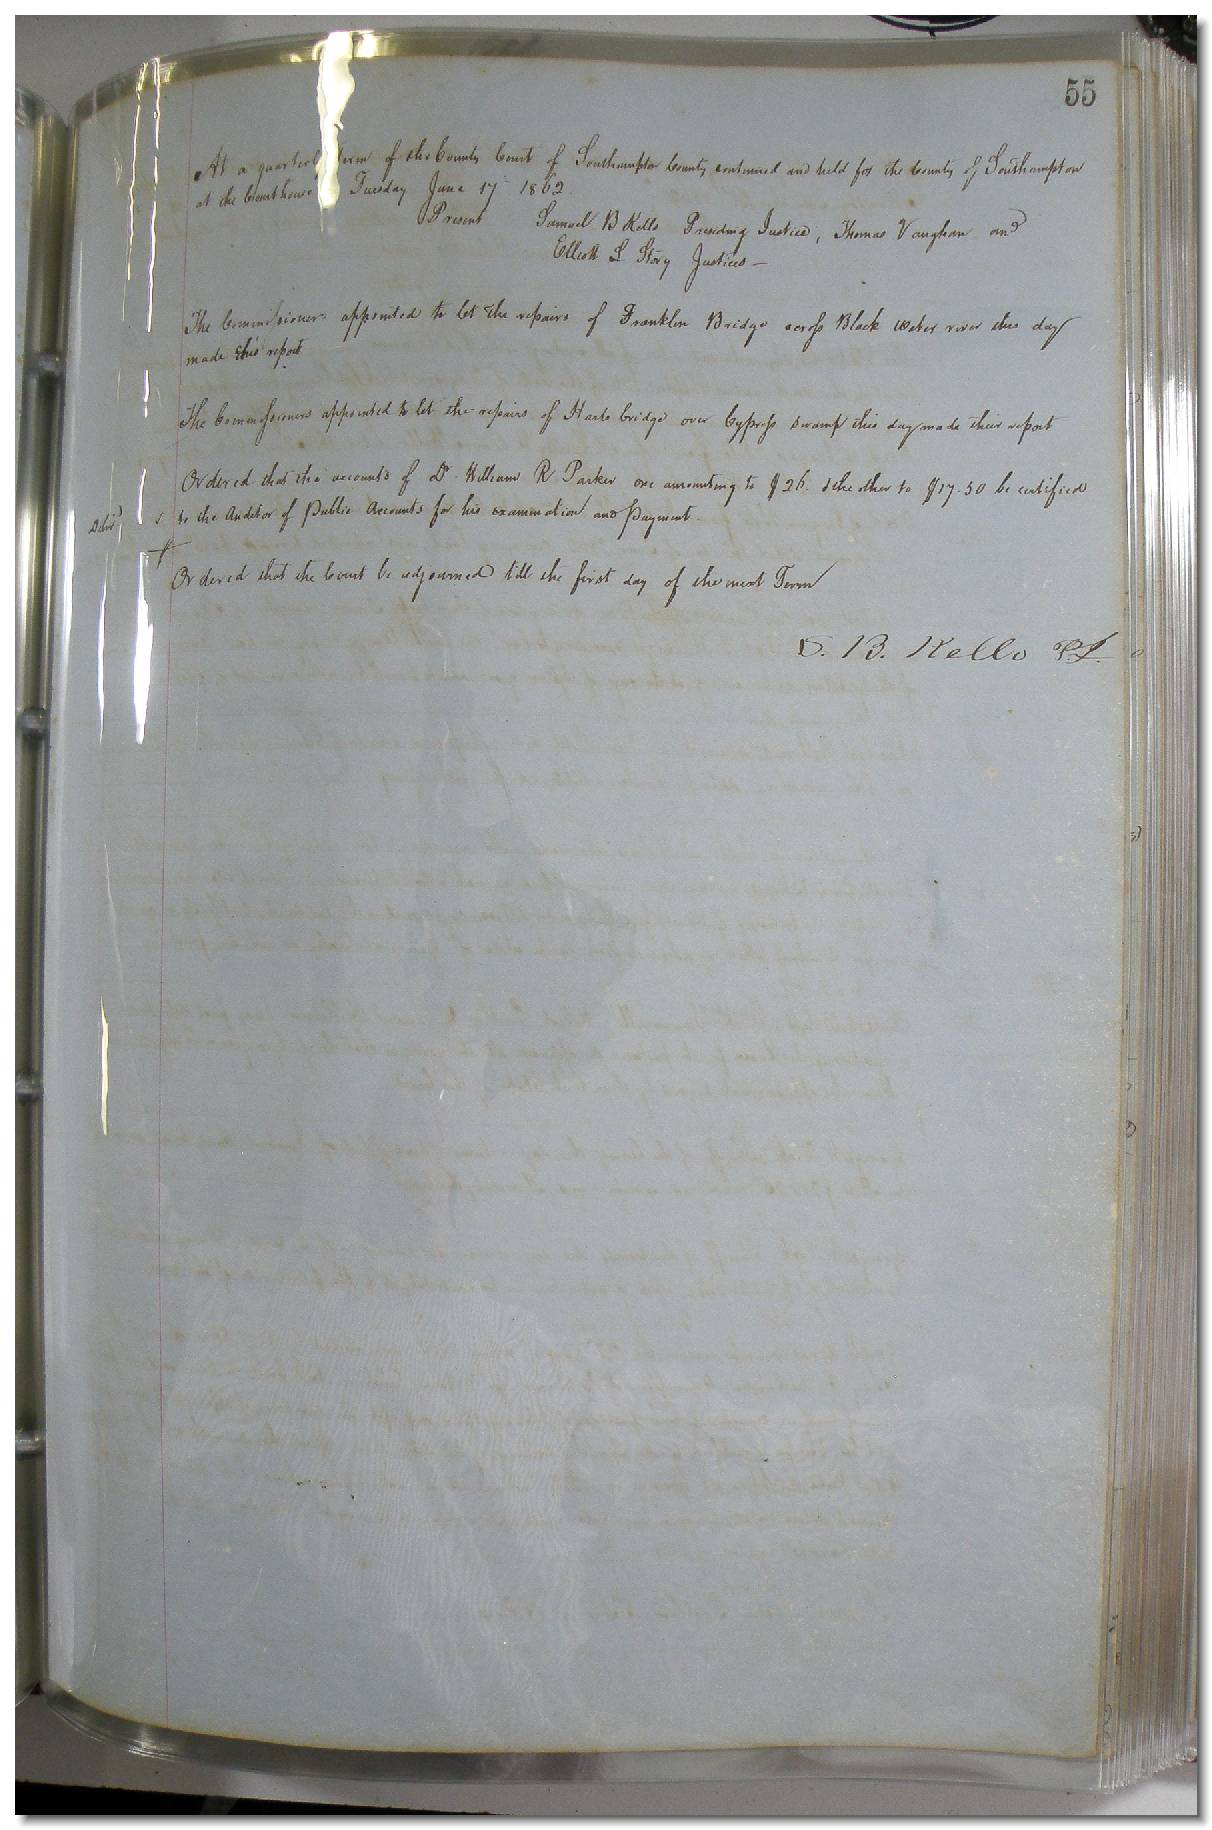 55
At a quarterly Term of the County Court of Southampton County continued and held for the County of Southampton
at the Courthouse Tuesday June 17 1862.
Present Samuel B Kello Presiding Justice, Thomas Vaughan and
Elliott L Story Justices —
The Commissioners appointed to let the repairs of Franklin Bridge across Black Water river this day
made this report
The Commissioners appointed to let the repairs of Harts bridge over Cypress Swamp this day made their report
Ordered that the accounts of Dr William R Parker one amounting to $26. & the other to $17.50 be certified
to the Auditor of Public Accounts for his examination and payment.
Ordered that the Court be adjourned till the first day of the next Term
S. B. Kello P.J.